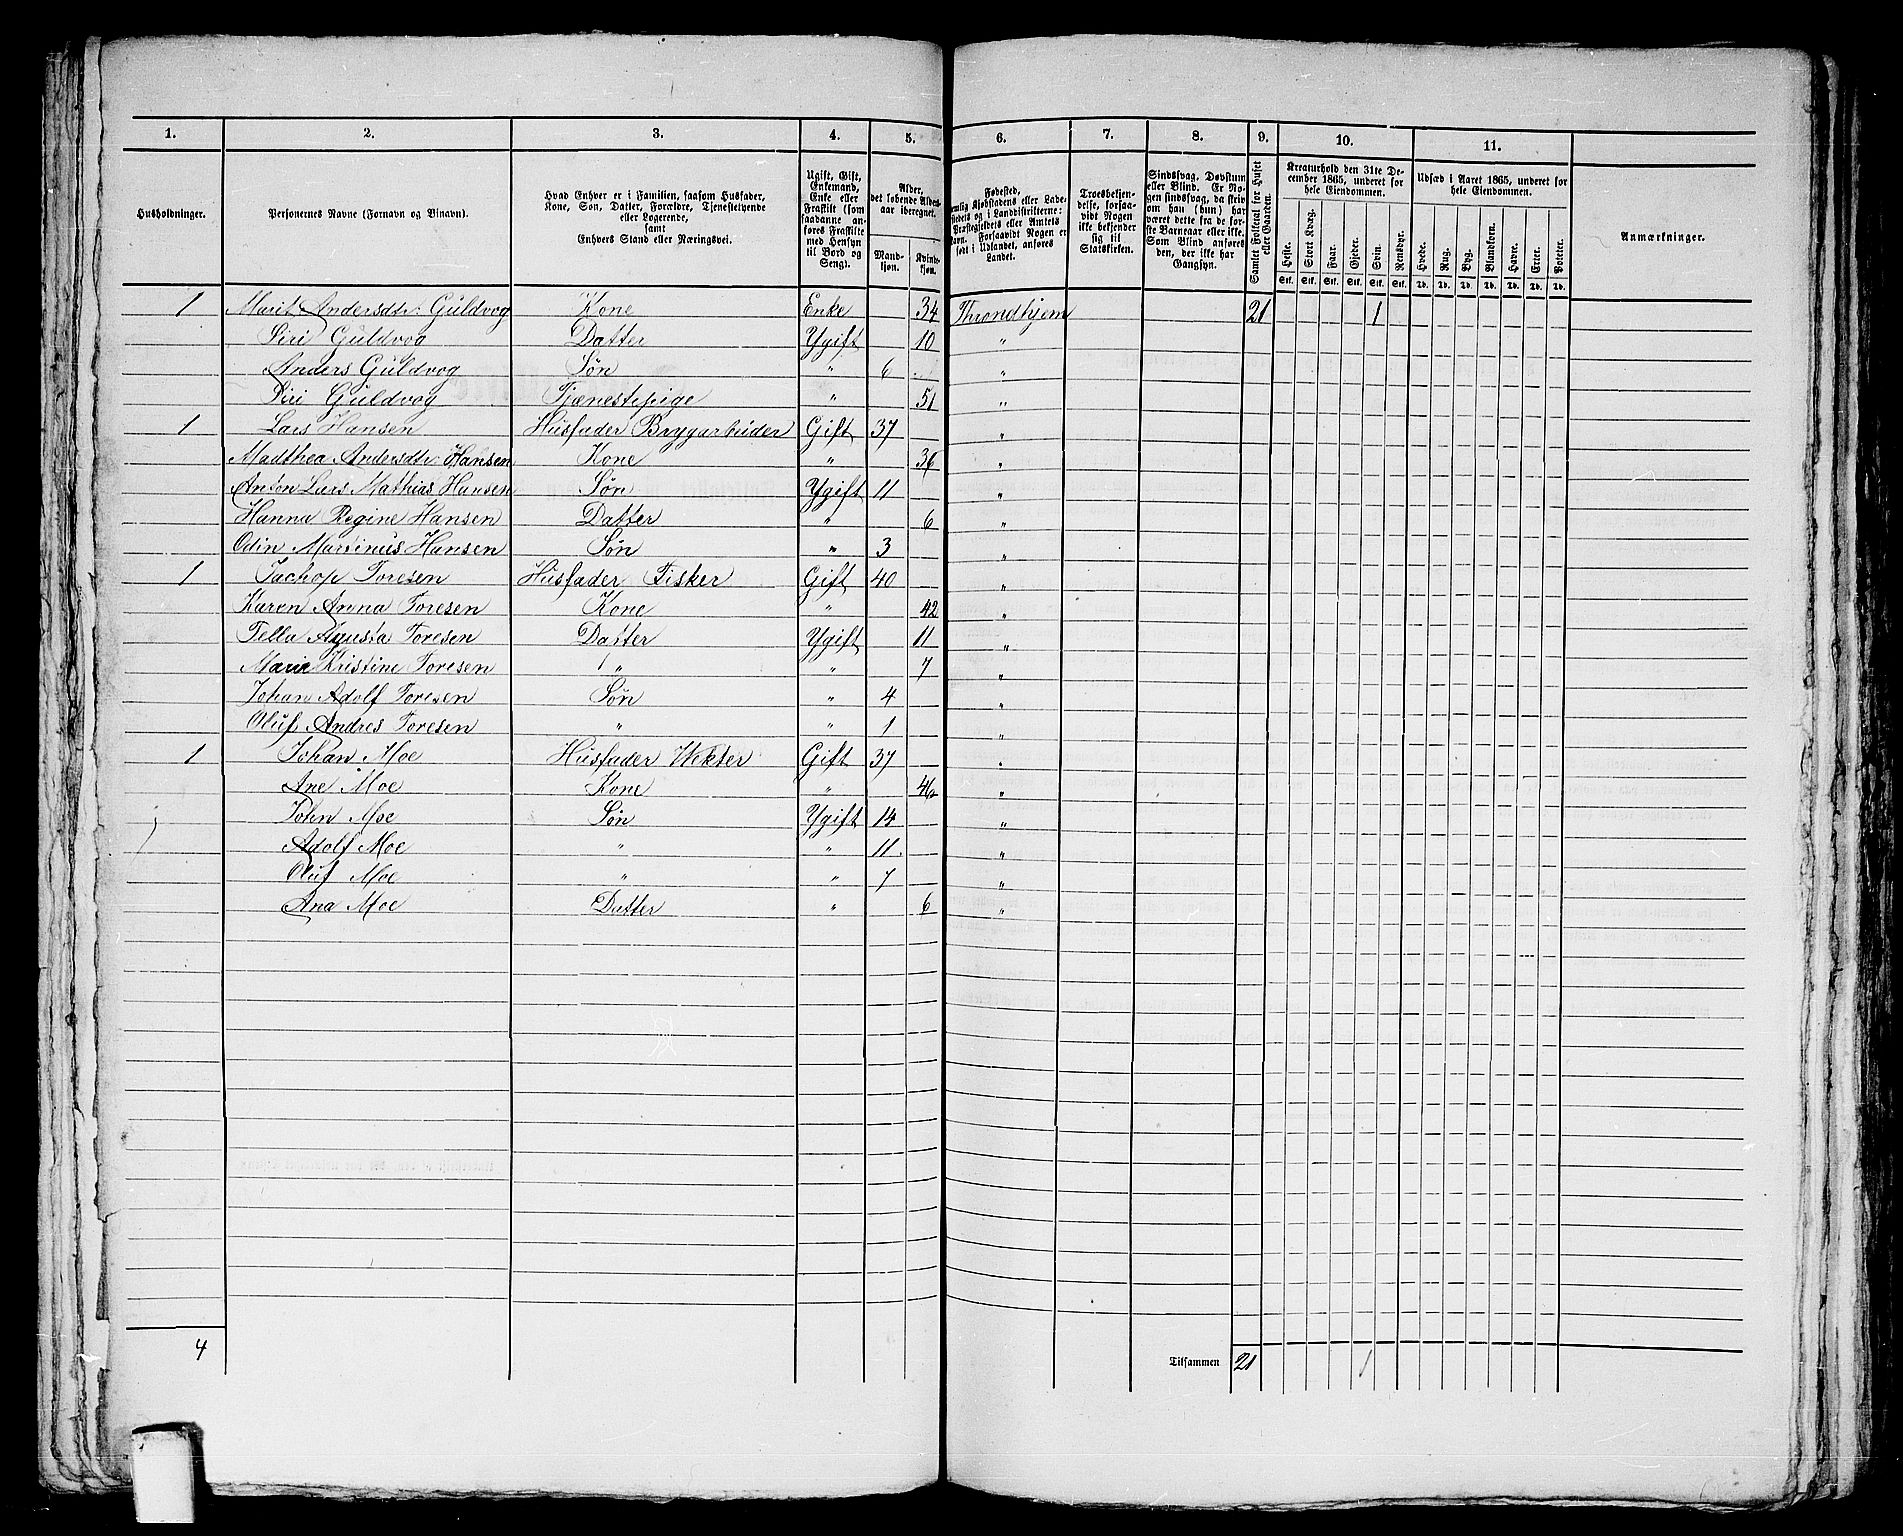 1. 2. 3. 4. 5. 6. 7. 8. 9. 10. 11.
Husholdninger.
Personernes Navne (Fornavn og Tilnavn).
Hvad Enhver er i Familien, saasom Husfader,
Kone, Søn, Datter, Forældre, Tjenestetyende
eller Logerende,
samt
Enhvers Stand eller Næringsvei.
Ugift, Gift,
Enkemand,
Enke eller
Fraskilt (som
saadanne an-
føres Fraskilte
med Hensyn
til Bord og
Seng).
Alder,
det løbende Alders-
aar iberegnet.
Mand-
kjøn.
Kvinde-
kjøn.
Fødested,
nemlig Kjøbstadens eller Lade-
stedets og i Landdistrikterne:
Præstegjeldets eller Amtets
Navn. Forsaavidt Nogen er
født i Udlandet, anføres
Landet.
Troesbekjen-
delse, forsaa-
vidt Nogen
ikke bekjender
sig til
Statskirken.
Sindssvag, Døvstum
eller Blind. Er No-
gen sindssvag, da skriv
om han (hun) har
været dette fra de før-
ste Barneaar eller ikke.
Som Blind anføres
den, der ikke har
Gangsyn.
Samlet Folketal for Huset
eller Gaarden.
Kreaturhold den 31te De-
cember 1865, underet for
hele Eiendommen.
Heste. Stort Kvæg. Faar. Gjeder. Svin. Rensdyr.
Stk. Stk. Stk. Stk. Stk. Stk.
Udsæd i Aaret 1865, underet for
hele Eiendommen.
Hvede. Rug. Byg. Blandkorn. Havre. Erter. Poteter.
Td. Td. Td. Td. Td. Td. Td.
Anmærkninger.
1 Marit Andersdtr. Guldvog Kone Enke 34 Throndhjem 21 1
Siri Guldvog Datter Ygift 10 "
Anders Guldvog Søn " 6 "
Siri Guldvog Tjænestepige " 51 "
1 Lars Hansen Husfader Brygarbeider Gift 37 "
Madthea Andersdtr. Hansen Kone " 36 "
Anton Lars Mathias Hansen Søn Ygift 11 "
Hanna Regine Hansen Datter " 6 "
Odin Martinus Hansen Søn " 3 "
1 Jachop Toresen Husfader Fisker Gift 40 "
Karen Anna Toresen Kone " 42 "
Tella Agusta Toresen Datter Ygift 11 "
Marie Kristine Toresen " " 7 "
Johan Adolf Toresen Søn " 4 "
Oluf Andres Toresen " " 1 "
1 Johan Moe Husfader Wekter Gift 37 "
Ane Moe Kone " 46 "
John Moe Søn Ygift 14 "
Adolf Moe " " 11 "
Oluf Moe " " 7 "
Ana Moe Datter " 6 "
4 Tilsammen 21 1